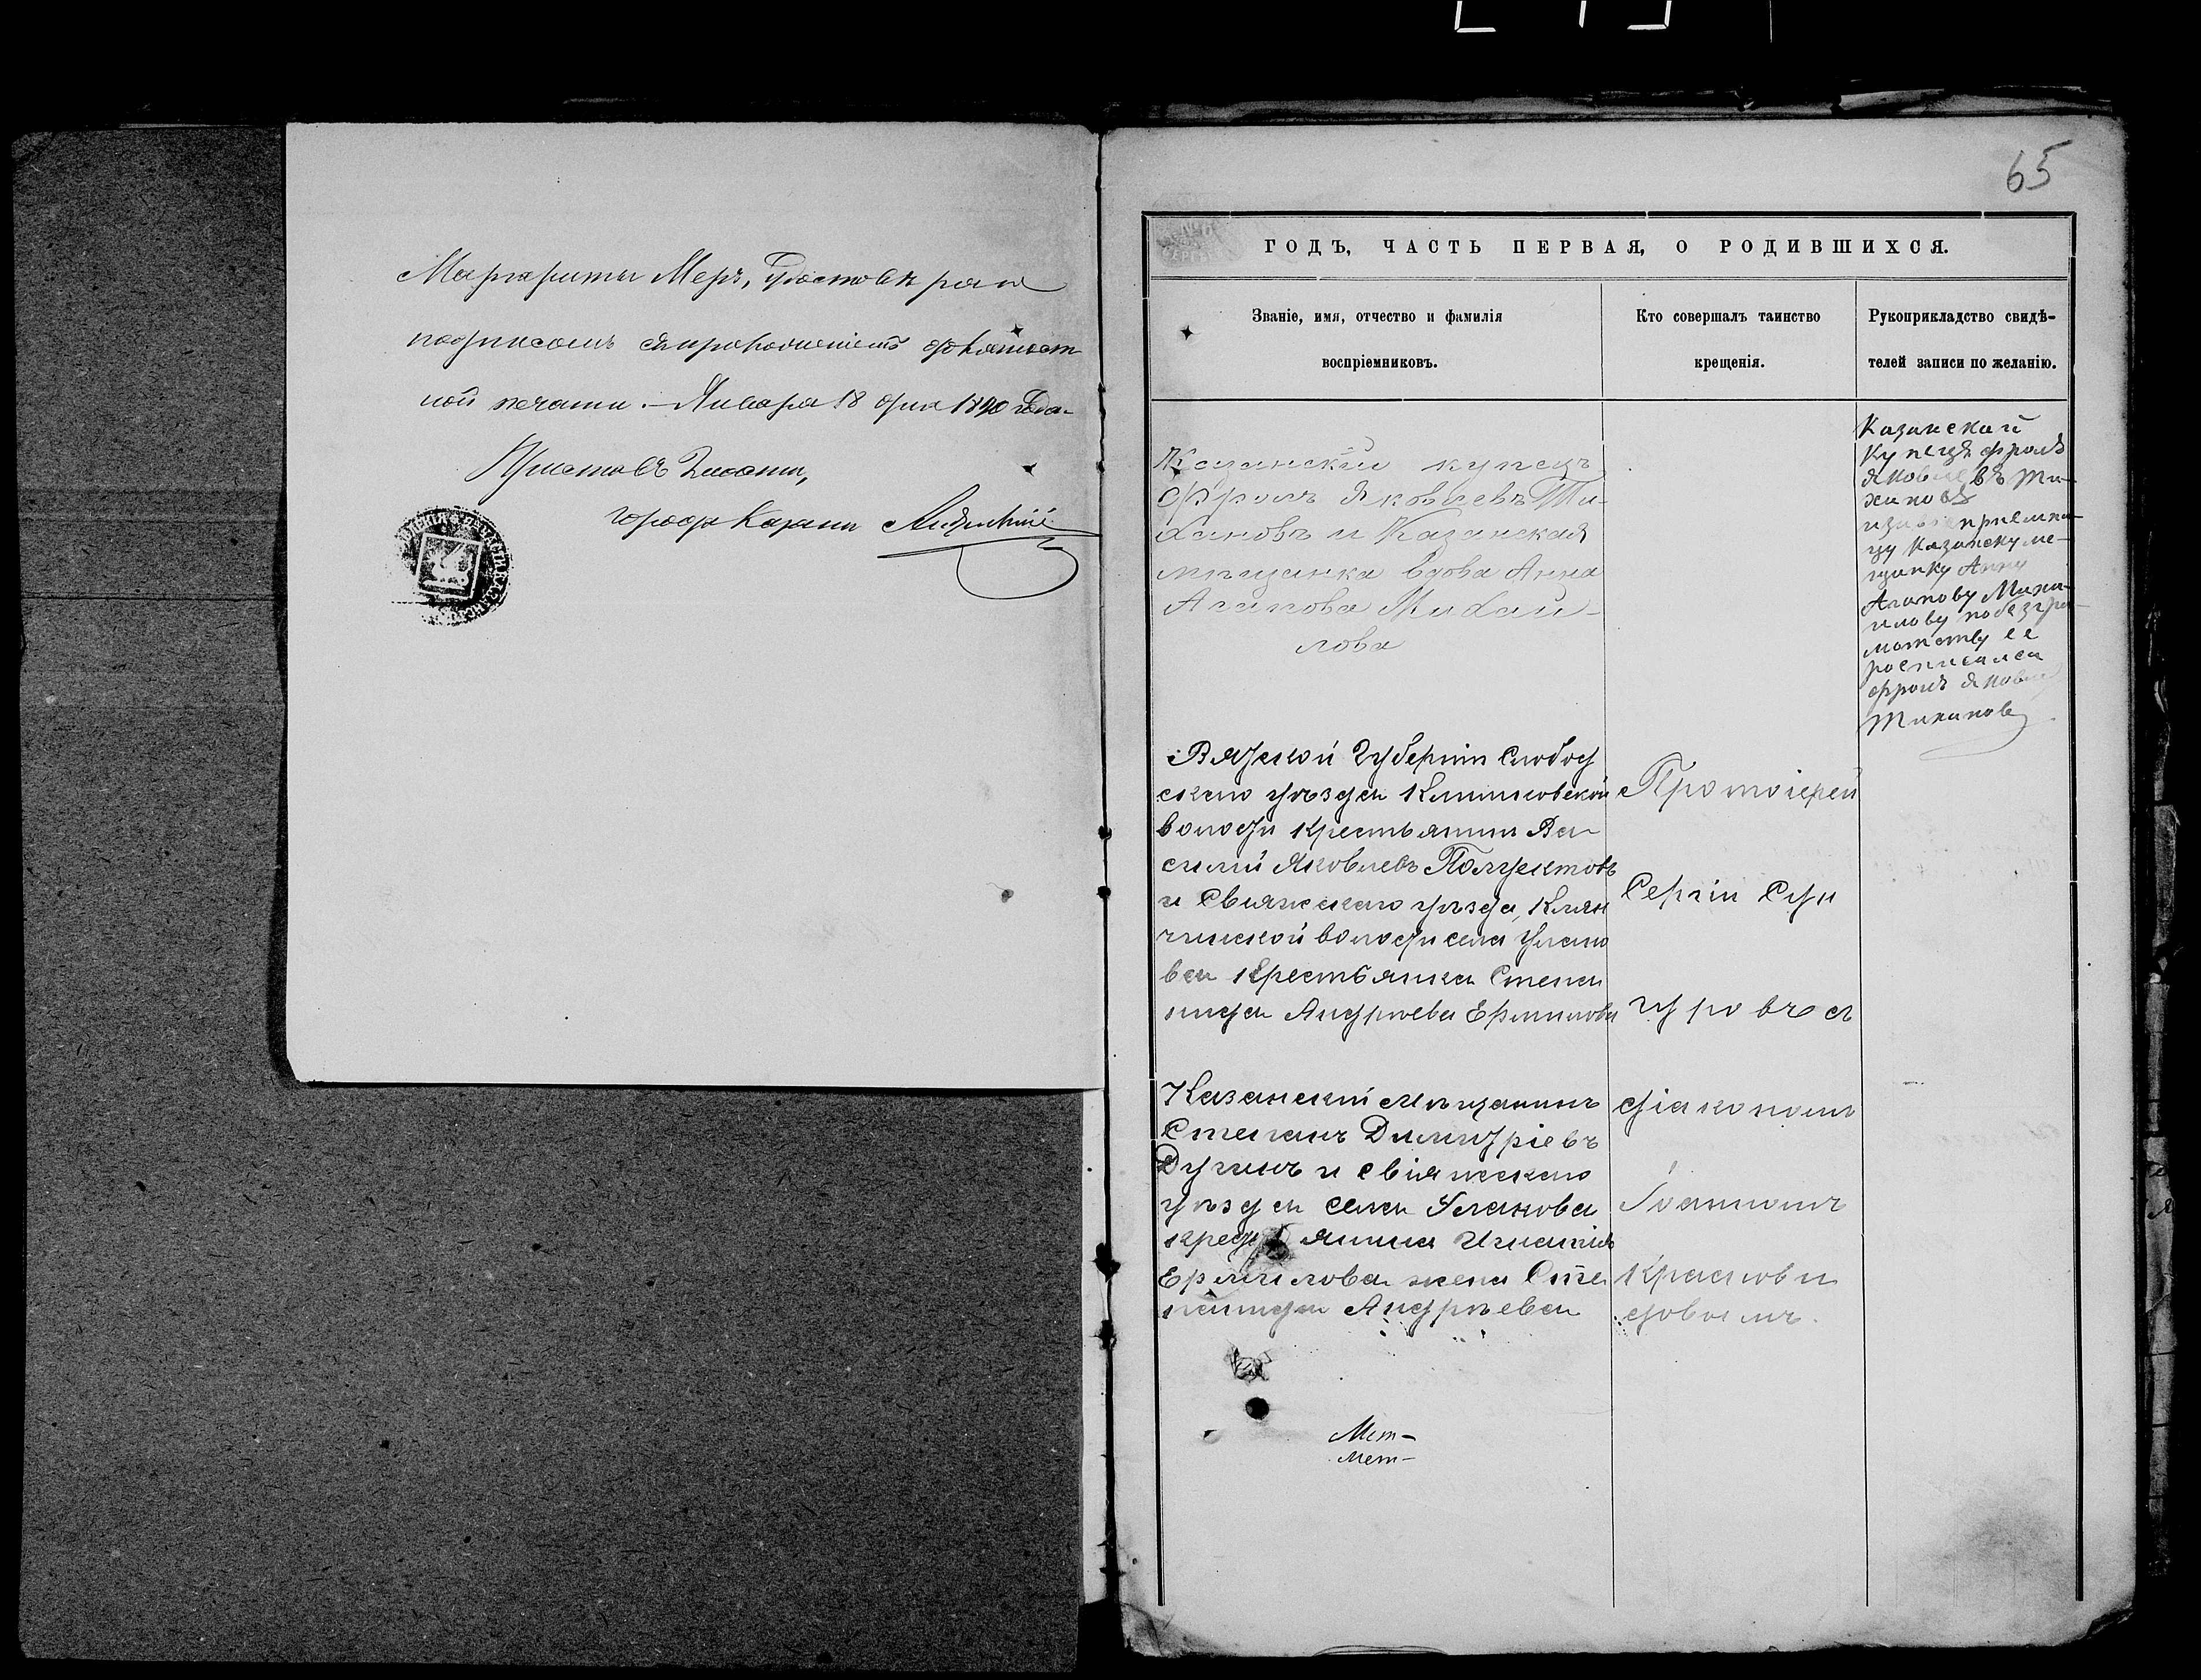 Маргариты Меръ, Приставъ рас
подписомъ съ приложеніемъ должност
ной печати. – Января 18 дня 1890 года.
Приставъ 2 части,
города Казани
65
ГОДЪ, ЧАСТЬ ПЕРВАЯ, О РОДИВШИХСЯ.
Званіе, имя, отчество и фамилія
воспріемниковъ.
Кто совершалъ таинство
крещенія.
Рукоприкладство свидѣ-
телей записи по желанію.
Казанскій купецъ
Фролъ Яковлевъ Ти-
хановъ и Казанская
мѣщанка вдова Анна
Агапова Михай-
лова
Казанскай
Купецъ Фролъ
Яковлевъ Ти-
хановъ
и за воспріемни-
цу Казанску ме-
щанку Анну
Агапову Михаи-
лову по безгра-
мотству ее
росписался
Фролъ Яковлев
Тиханов
Вятской Губерніи Слобод
скаго уѣзда Климковской
волости крестьянин Ва-
силій Яковлевъ Полуектовъ
и Свіяжскаго уѣзда, Клян
чинской волости села Уланo
ва крестьянка Степа
нида Андреева Ермилова
Протоіерей
Сергій Сун
гуровъ съ
діакономъ
Іоанномъ
Красновu
довымъ.
Казанскій мѣщанинъ
Степанъ Димитріевъ
Дугинъ и Свіяжскаго
уѣзда села Уланова
крестьянина Игнатія
Ермилова жена Сте
панида Андрѣева
Мет-
Мет-